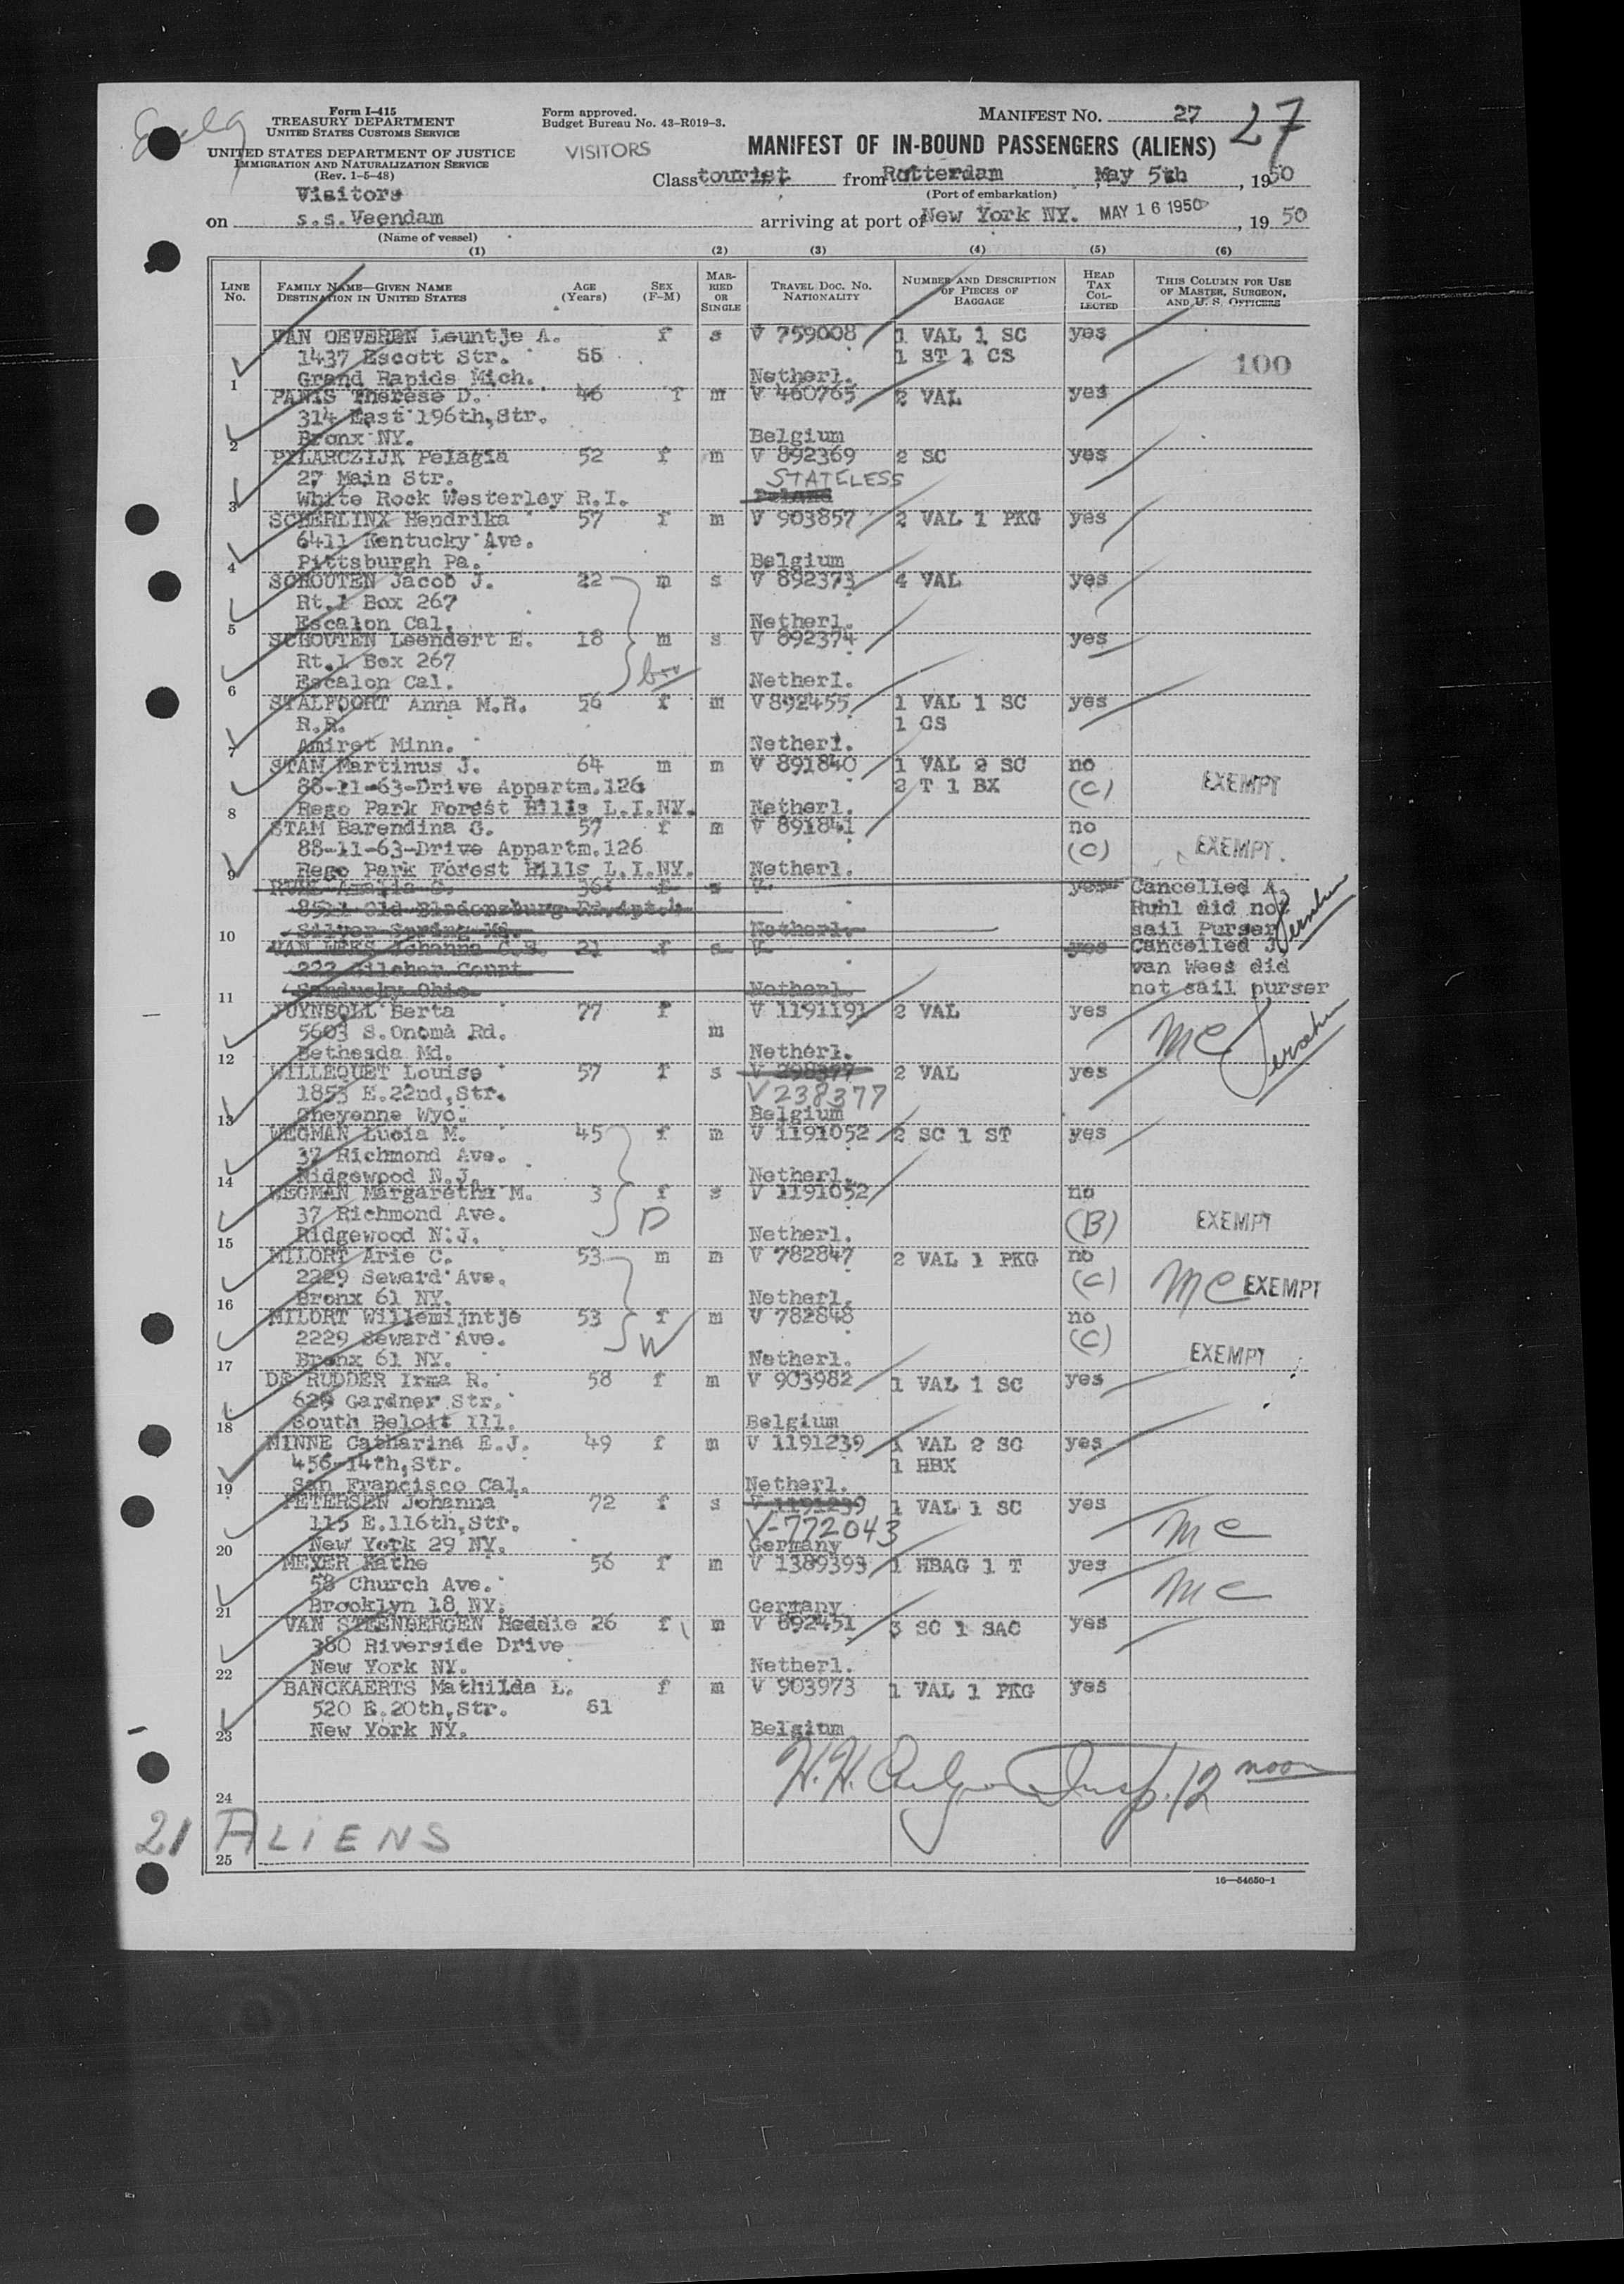 Form I-415
TREASURY DEPARTMENT
UNITED STATES CUSTOMS SERVICE
UNITED STATES DEPARTMENT OF JUSTICE
IMMIGRATION AND NATURALIZATION SERVICE
(Rev. 1-5-48)
Visitors
Form approved.
Budget Bureau No. 43-R019-3.
VISITORS
MANIFEST NO. 27 27
MANIFEST OF IN-BOUND PASSENGERS (ALIENS)
Class tourist from Rotterdam May 5th, 1950
(Port of embarkation)
on s.s. Veendam arriving at port of New York NY. MAY 16 1950, 1950
(Name of vessel)
(1) (2) (3) (4) (5) (6)
LINE No. FAMILY NAME—GIVEN NAME DESTINATION IN UNITED STATES AGE (Years) SEX (F-M) MARRIED OR SINGLE TRAVEL DOC. NO. NATIONALITY NUMBER AND DESCRIPTION OF PIECES OF BAGGAGE HEAD TAX COLLECTED THIS COLUMN FOR USE OF MASTER, SURGEON, AND U. S. OFFICERS
VAN OEVEREN Leuntje A. f s V 759008 1 VAL 1 SC yes
1437 Escott Str. 1 ST 1 CS
1 Grand Rapids Mich. Netherl. 100
PANIS Therese D. 46 f m V 460765 2 VAL yes
314 East 196th,Str.
2 Bronx NY. Belgium
PYLARCZIJK Pelagia 52 f m V 892369 2 SC yes
27 Main Str. STATELESS
3 White Rock Westerley R.I. Poland
SCHERLINX Hendrika 57 f m V 903857 2 VAL 1 PKG yes
6411 Kentucky Ave.
4 Pittsburgh Pa. Belgium
SCHOUTEN Jacob J. 22 m s V 892373 4 VAL yes
Rt.1 Box 267
5 Escalon Cal. Netherl.
SCHOUTEN Leendert E. 18 m s V 892374 yes
Rt.1 Box 267
6 Escalon Cal. Netherl.
STALFOORT Anna M.R. 56 f m V 892455 1 VAL 1 SC yes
R.R. 1 CS
7 Amiret Minn. Netherl.
STAM Martinus J. 64 m m V 891840 1 VAL 2 SC no
88-11-63-Drive Appartm.126 2 T 1 BX (C) EXEMPT
8 Rego Park Forest Hills L.I.NY. Netherl.
STAM Barendina G. 57 f m V 891841 no
88-11-63-Drive Appartm.126 (C) EXEMPT
9 Rego Park Forest Hills L.I.NY. Netherl.
RUHL Amalia 36 f s V yes Cancelled A.
8511 Old Bladensburg Rd.Apt.4 Ruhl did not
10 Silver Spring Md. Netherl. sail Purser
VAN WEES Johanna C.E. 21 f s V yes Cancelled J.
222 Gilcher Court van Wees did
11 Sandusky Ohio Netherl. not sail purser
JUYNBOLL Berta 77 f V 1191191 2 VAL yes
5603 S.Onoma Rd. m MC
12 Bethesda Md. Netherl.
WILLEQUET Louise 57 f s V 298377 2 VAL yes
1853 E.22nd,Str. V 238377
13 Cheyenne Wyo. Belgium
WEGMAN Lucia M. 45 f m V 1191052 2 SC 1 ST yes
37 Richmond Ave.
14 Ridgewood N.J. Netherl.
WEGMAN Margaretha M. 3 f s V 1191052 no
37 Richmond Ave. D (B) EXEMPT
15 Ridgewood N.J. Netherl.
MILORT Arie C. 53 m m V 782847 2 VAL 1 PKG no
2229 Seward Ave. (C) MC EXEMPT
16 Bronx 61 NY. Netherl.
MILORT Willemijntje 53 f m V 782848 no
2229 Seward Ave. W (C)
17 Bronx 61 NY. Netherl. EXEMPT
DE RUDDER Irma R. 58 f m V 903982 1 VAL 1 SC yes
629 Gardner Str.
18 South Beloit Ill. Belgium
MINNE Catharina E.J. 49 f m V 1191239 1 VAL 2 SC yes
456-14th,Str. 1 HBX
19 San Francisco Cal. Netherl.
PETERSEN Johanna 72 f s V 1191239 1 VAL 1 SC yes
115 E.116th,Str. V-772043 MC
20 New York 29 NY. Germany
MEYER Kathe 56 f m V 1389393 1 HBAG 1 T yes
58 Church Ave. MC
21 Brooklyn 18 NY. Germany
VAN STEENBERGEN Heddie 26 f m V 892451 3 SC 1 SAC yes
380 Riverside Drive
22 New York NY. Netherl.
BANCKAERTS Mathilda L. f m V 903973 1 VAL 1 PKG yes
520 E.20th,Str. 61
23 New York NY. Belgium
H.H. Insp. 12 noon
24
21 ALIENS
25
16—54650-1